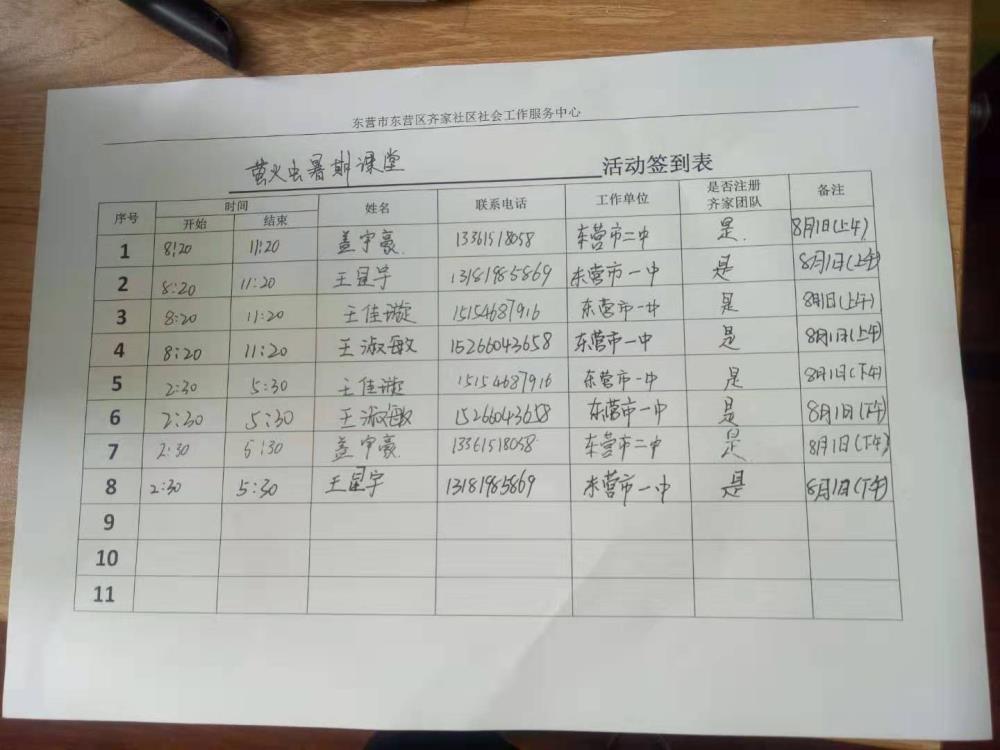 东营市东营区齐家社区社会工作服务中心
萤火虫暑期课堂 活动签到表
序号 时间 开始 结束 姓名 联系电话 工作单位 是否注册齐家团队 备注
1 8:20 11:20 盖宇豪 13361518058 东营市二中 是 8月1日(上午)
2 8:20 11:20 王星宇 13181985869 东营市一中 是 8月1日(上午)
3 8:20 11:20 王佳璇 15154687916 东营市一中 是 8月1日(上午)
4 8:20 11:20 王淑敏 15266043658 东营市一中 是 8月1日(上午)
5 2:30 5:30 王佳璇 15154687916 东营市一中 是 8月1日(下午)
6 2:30 5:30 王淑敏 15266043658 东营市一中 是 8月1日(下午)
7 2:30 5:30 盖宇豪 13361518058 东营市二中 是 8月1日(下午)
8 2:30 5:30 王星宇 13181985869 东营市一中 是 8月1日(下午)
9
10
11